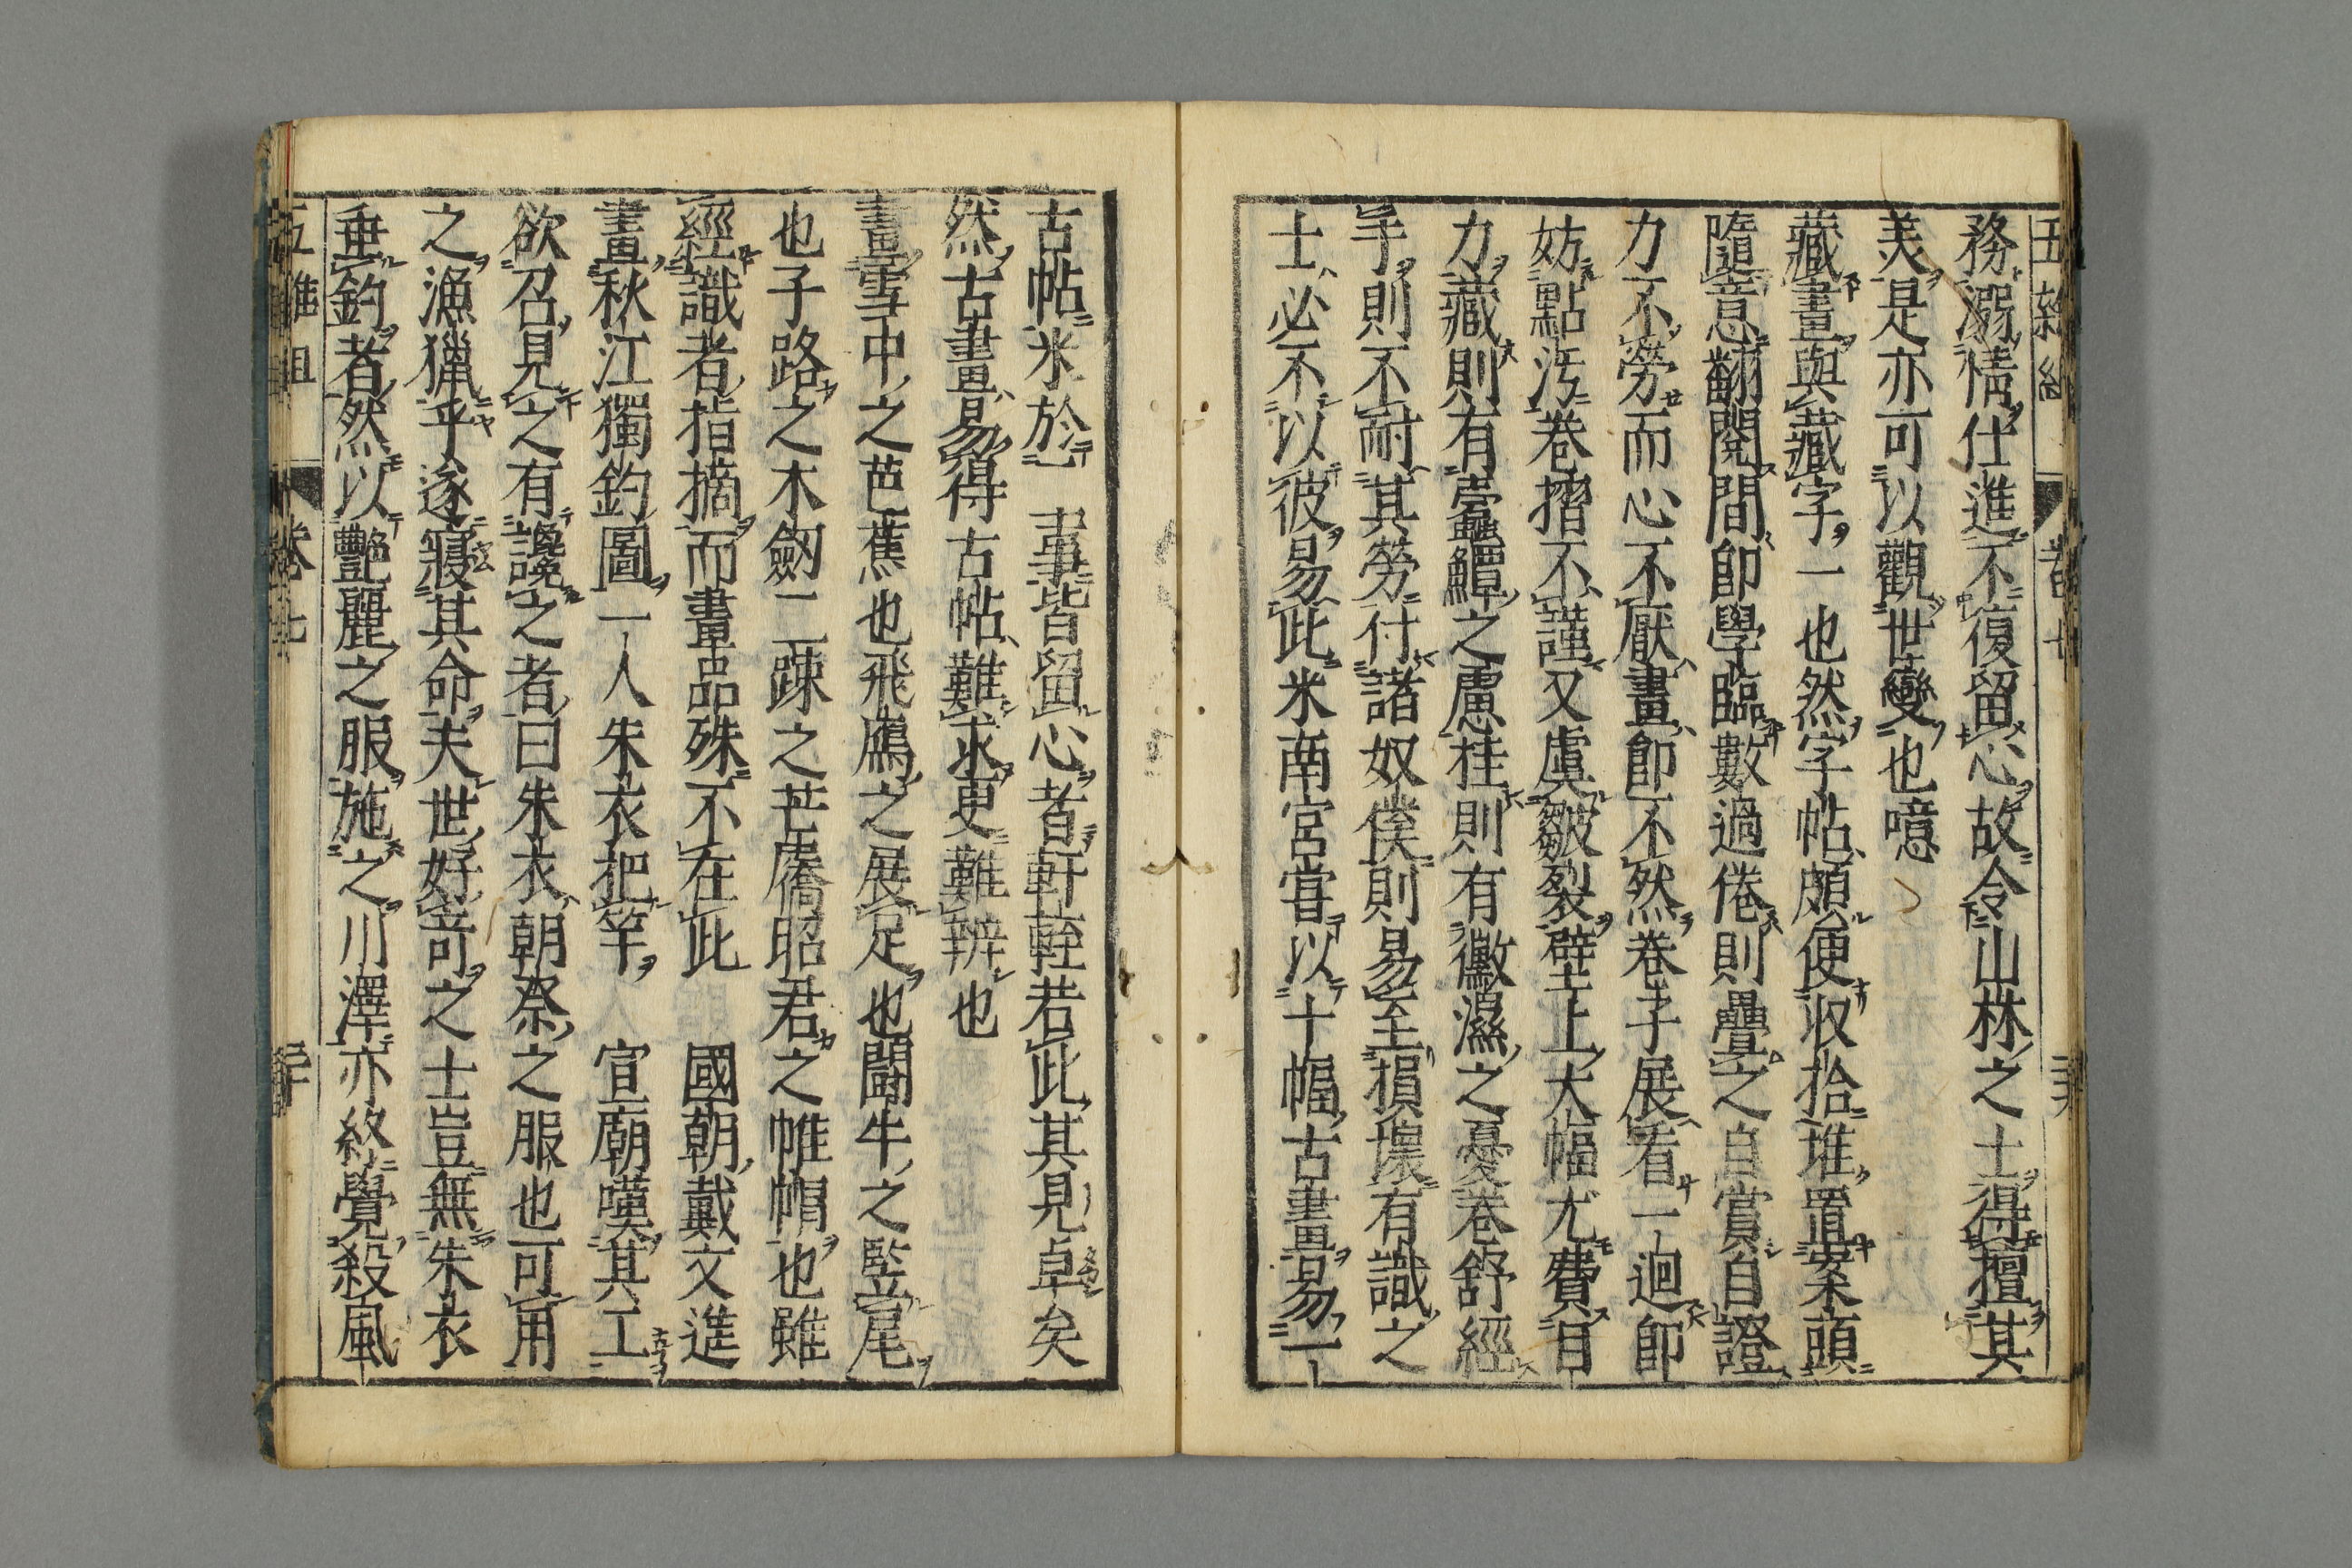 務溺情仕進不復留心故令山林之士得擅其
美是亦可以觀世變也噫
藏畫與藏字一也然字帖頗便收拾堆置案頭
隨意翻閱間即學臨數過倦則疊之自賞自證
力不勞而心不厭畫即不然卷子展看一迴即
妨點汚卷摺不謹又虞皺裂壁上大幅尤費目
力藏則有蠹蟫之慮挂則有黴濕之憂卷舒經
手則不耐其勞付諸奴僕則易至損壞有識之
士必不以彼易此米南宮嘗以十幅古畫易一
古帖米於二事皆留心者軒輊若此其見卓矣
然古畫易得古帖難求更難辨也
畫雪中之芭蕉也飛鴈之展足也鬭牛之豎尾
也子路之木劒二疎之芒屩昭君之帷帽也雖
經識者指摘而畫品殊不在此 國朝戴文進
畫秋江獨釣圖一人朱衣把竿 宣廟嘆其工
欲召見之有讒之者曰朱衣朝祭之服也可用
之漁獵乎遂寢其命夫世好奇之士豈無朱衣
垂釣者然以艷麗之服施之川澤亦終覺殺風
五雜組 卷七